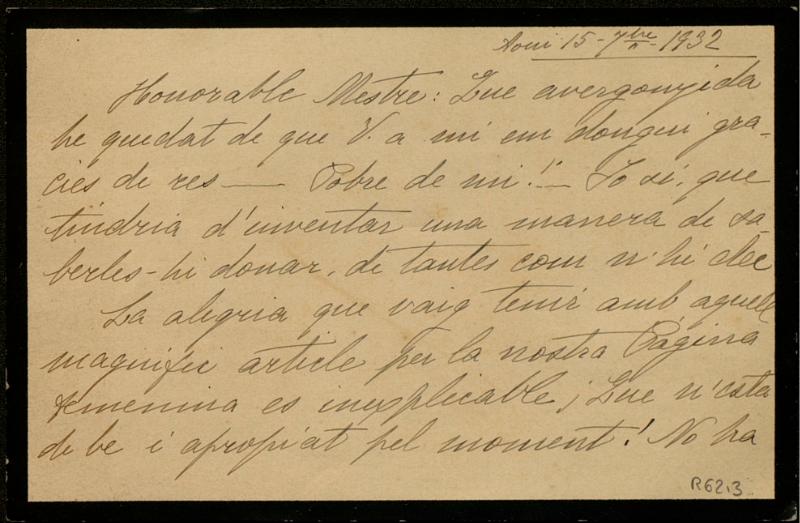 Avui 15-7bre-1932
Honorable Mestre: Que avergonyida
he quedat de que V. a mi em dongui gra-
cies de res — Pobre de mi!! — Jo si, que
tindria d'inventar una manera de sa-
berles-hi donar, de tantes com n'hi dec
La alegria que vaig tenir amb aquell
magnific article per la nostra Pàgina
femenina es inexplicable; Que n'esta
de be i apropiat pel moment! No ha
R62.3